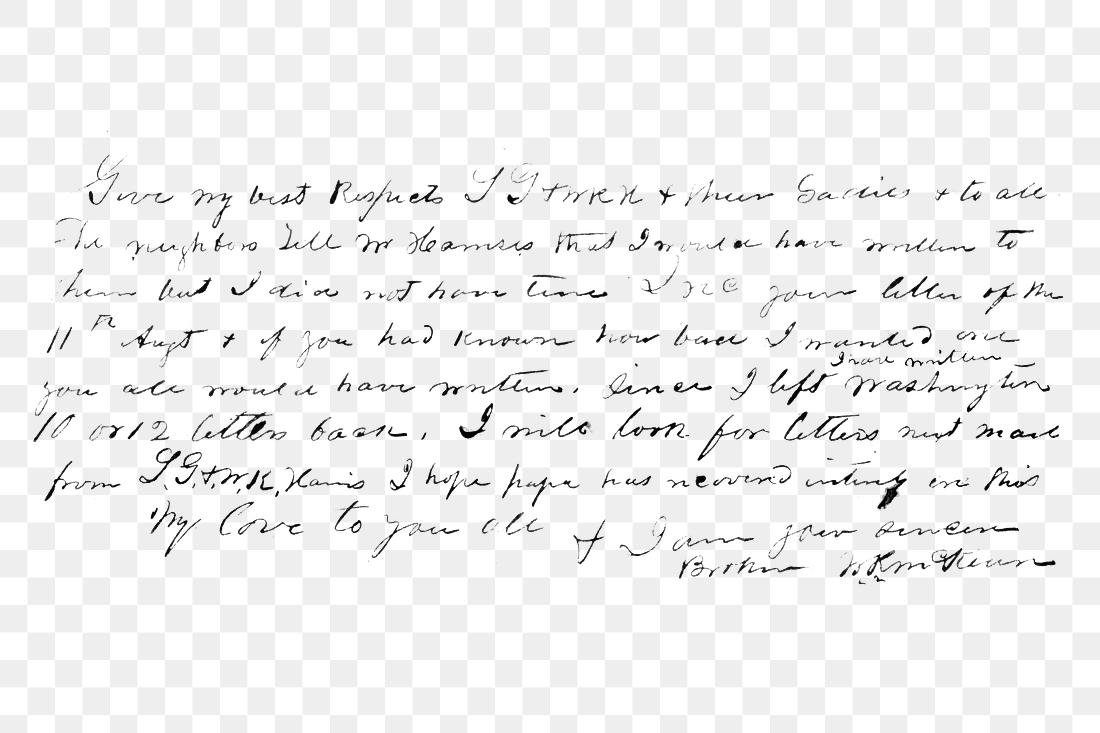 Give my best Respects S G & WKH & their Ladies & to all
The neighbors Tell Mr Harrises that I would have written to
them but I did not have time I rec your letter of the
11th Augt & if you had known how bad I wanted one
you all would have written. Since I left Washington
I have written
10 or 12 letters back. I will look for letters next mail
from S.G. & W.K. Harris I hope papa has recovered intirely ere this
My Love to you all & I am your sincere
Brother W R McKern